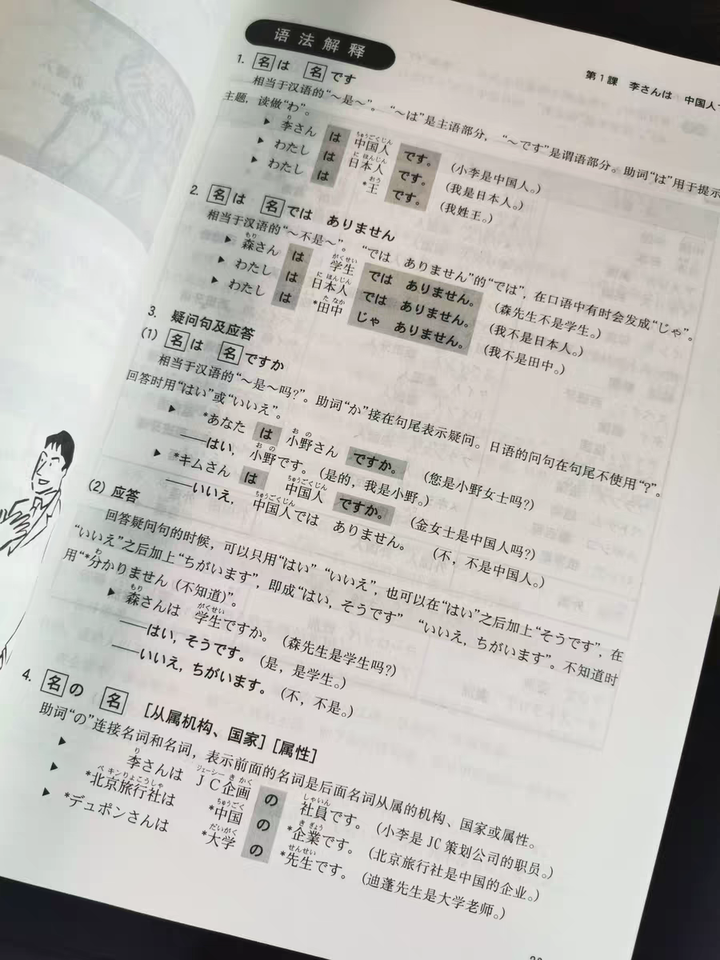 第1課 李さんは 中国人
语法解释
1. 名は 名です
相当于汉语的“～是～”。 “～は”是主语部分， “～です”是谓语部分。助词“は”用于提示
主题，读做“わ”。
▶ 李さん は 中国人 です。 (小李是中国人。)
▶ わたし は 日本人 です。 (我是日本人。)
▶ わたし は *王 です。 (我姓王。)
2. 名は 名では ありません
相当于汉语的“～不是～”。 “では ありません”的“では”，在口语中有时会发成“じゃ”。
▶ 森さん は 学生 では ありません。 (森先生不是学生。)
▶ わたし は 日本人 では ありません。 (我不是日本人。)
▶ わたし は *田中 じゃ ありません。 (我不是田中。)
3. 疑问句及应答
(1) 名は 名ですか
相当于汉语的“～是～吗?”。助词“か”接在句尾表示疑问。日语的问句在句尾不使用“?”。
回答时用“はい”或“いいえ”。
▶ *あなた は 小野さん ですか。 (您是小野女士吗?)
——はい，小野です。(是的，我是小野。)
▶ *キムさん は 中国人 ですか。 (金女士是中国人吗?)
——いいえ，中国人では ありません。 (不，不是中国人。)
(2) 应答
回答疑问句的时候，可以只用“はい” “いいえ”，也可以在“はい”之后加上“そうです”，在
“いいえ”之后加上“ちがいます”，即成“はい，そうです” “いいえ，ちがいます”。不知道时
用“*分かりません (不知道)”。
▶ 森さんは 学生ですか。(森先生是学生吗?)
——はい，そうです。(是，是学生。)
——いいえ，ちがいます。(不，不是。)
4. 名の 名 [从属机构、国家] [属性]
助词“の”连接名词和名词，表示前面的名词是后面名词从属的机构、国家或属性。
▶ 李さんは JC企画 の 社員です。 (小李是 JC 策划公司的职员。)
▶ *北京旅行社は *中国 の *企業です。 (北京旅行社是中国的企业。)
▶ *デュポンさんは *大学 の *先生です。 (迪蓬先生是大学老师。)